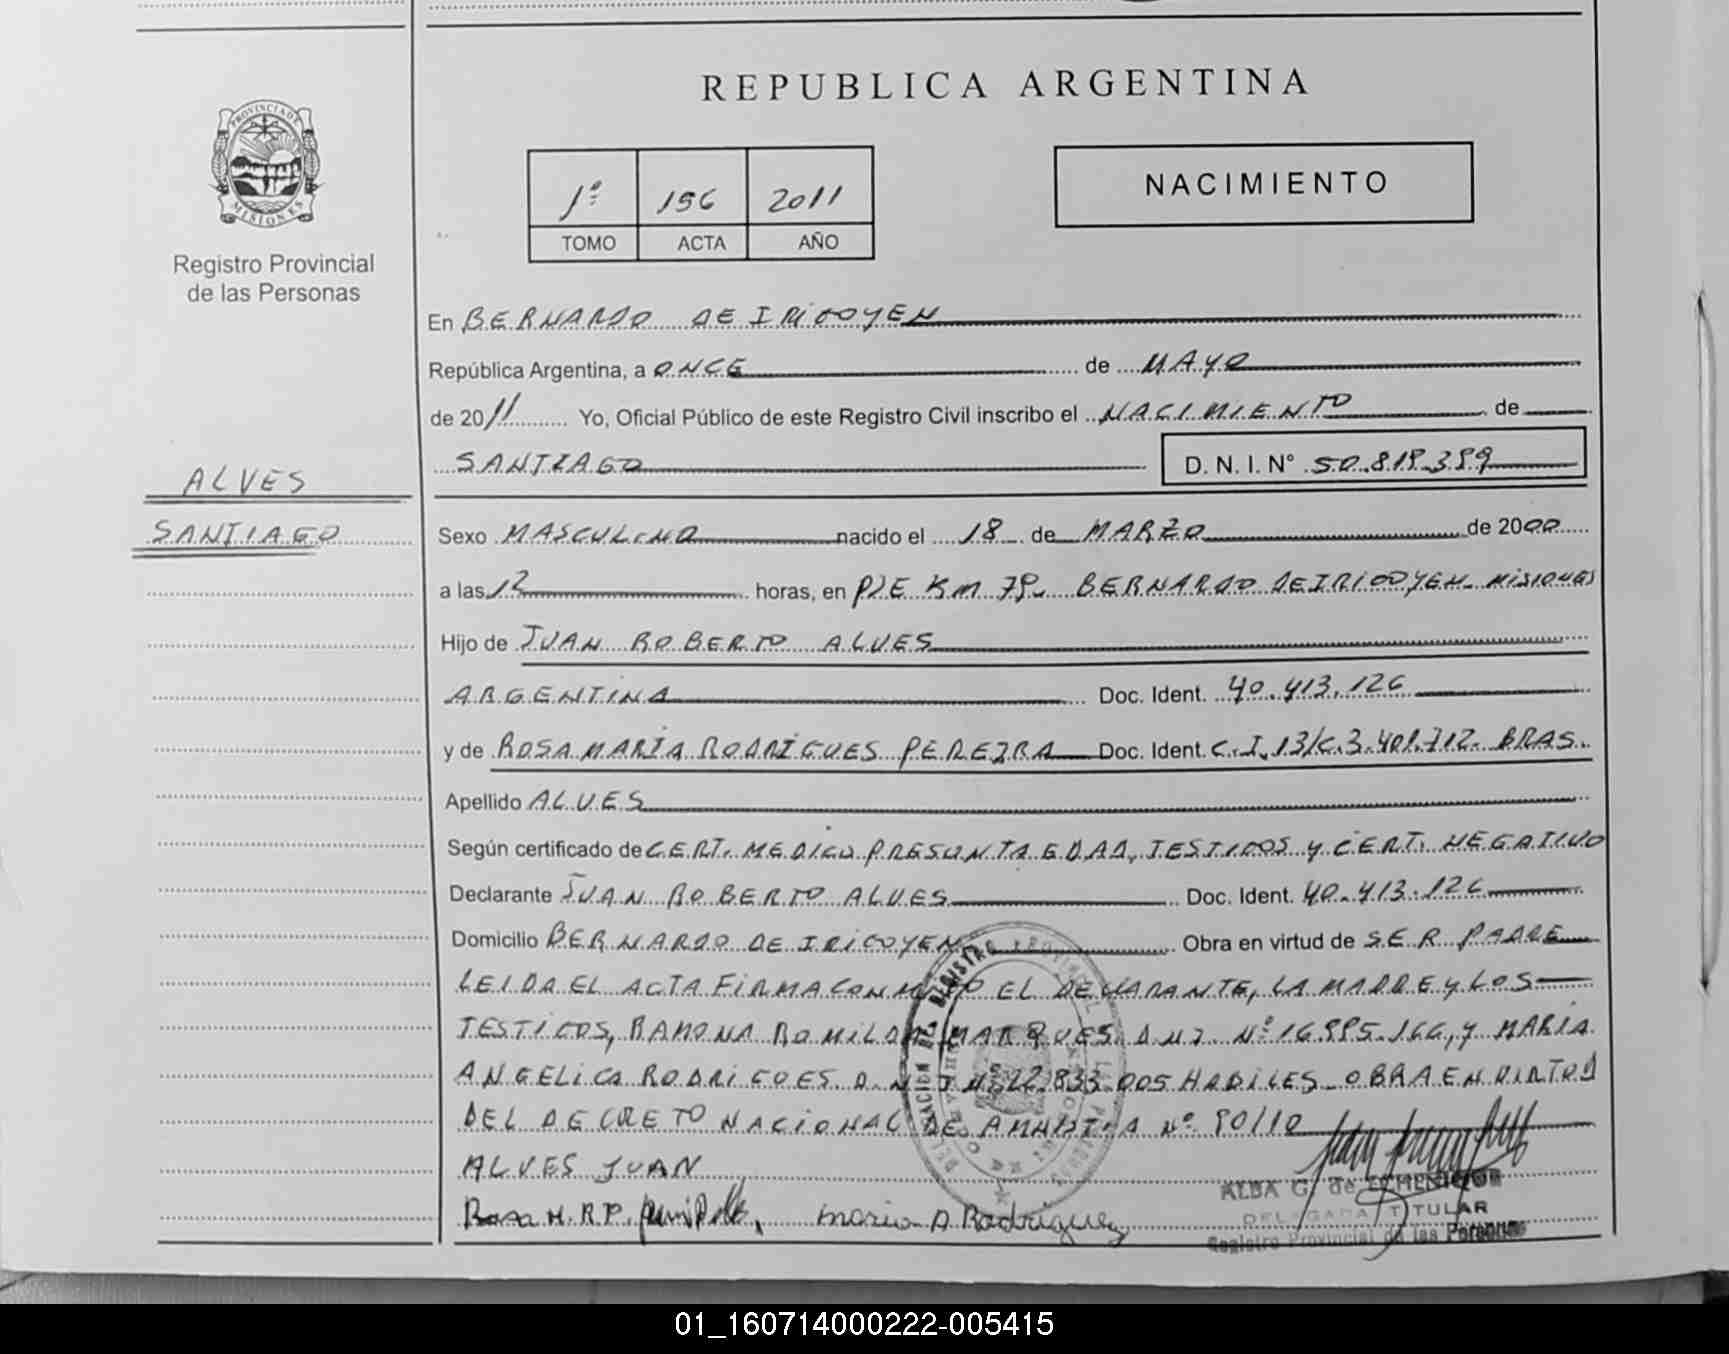 REPUBLICA ARGENTINA
PROVINCIA DE
MISIONES
Registro Provincial
de las Personas
1º 156 2011
TOMO ACTA AÑO
NACIMIENTO
En BERNARDO DE IRIGOYEN
República Argentina, a ONCE de MAYO
de 2011 Yo, Oficial Público de este Registro Civil inscribo el NACIMIENTO de
SANTIAGO D. N. I. N°
ALVES
SANTIAGO
Sexo MASCULINO nacido el 18 de MARZO de 2000
a las 12 horas, en PJE KM 78. BERNARDO DE IRIGOYEN. MISIONES
Hijo de JUAN ROBERTO ALVES
ARGENTINA Doc. Ident. 40.413.126
y de ROSA MARIA RODRIGUES PEREIRA Doc. Ident. C.I. BRAS.
Apellido ALVES
Según certificado de CERT. MEDICO PRESUNTA EDAD, TESTIGOS y CERT. NEGATIVO
Declarante JUAN ROBERTO ALVES Doc. Ident. 40.413.126
Domicilio BERNARDO DE IRIGOYEN Obra en virtud de SER PADRE
LEIDA EL ACTA FIRMA CONMIGO EL DECLARANTE, LA MADRE y LOS
TESTIGOS, RAMONA ROMILDA MARQUES D.N.I. Nº y MARIA
ANGELICA RODRIGUES D.N.I. Nº 22.833.005 HABILES. OBRA EN VIRTUD
DEL DECRETO NACIONAL DE AMNISTIA Nº 90/10
ALVES JUAN
Rosa M.R.P. Maria A Rodriguez
ALBA G. de ECHENIQUE
DELEGADA TITULAR
Registro Provincial de las Personas
01_160714000222-005415